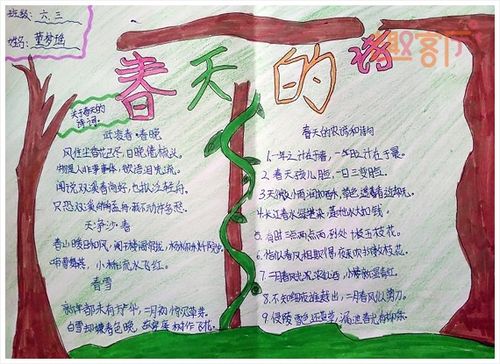 班级：六、三
姓名：董梦瑶
趣客厅
春天的诗
关于春天的
诗词。
武陵春·春晚
风住尘香花已尽，日晚倦梳头。
物是人非事事休，欲语泪先流。
闻说双溪春尚好，也拟泛轻舟。
只恐双溪舴艋舟，载不动许多愁。
天净沙·春
春山暖日和风，阑干楼阁帘栊，杨柳秋千院中。
啼莺舞燕，小桥流水飞红。
春雪
新年都未有芳华，二月初惊见草芽。
白雪却嫌春色晚，故穿庭树作飞花。
春天的农谚和诗句
1.一年之计在于春，一年之计在于晨。
2.春天孩儿脸，一日三变脸。
3.天街小雨润如酥，草色遥看近却无。
4.长江春水绿堪染，莲叶出水大如钱。
5.有时三点两点雨，到处十枝五枝花。
6.恰似春风相欺得，夜来吹折数枝花。
7.二月春风
8.不知细叶谁裁出，二月春风似剪刀。
9.侵陵雪色还萱草，漏泄春光有柳条。